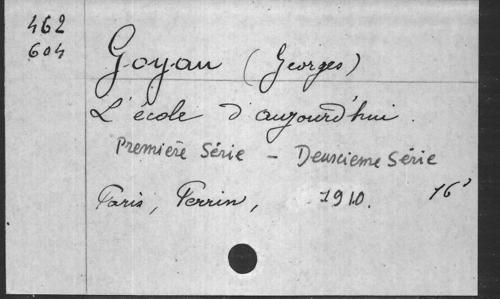 462
604
Goyau (Georges)
L'école d'aujourd'hui.
Première Série - Deuxcieme Série
Paris, Perrin, 1910. 16°